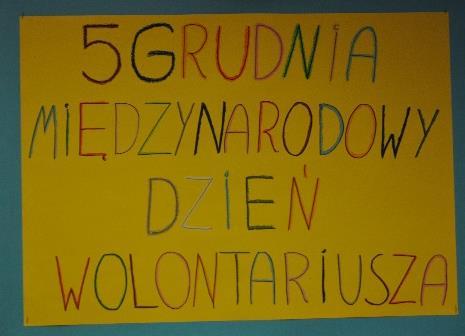 5 GRUDNIA
MIĘDZYNARODOWY
DZIEŃ
WOLONTARIUSZA